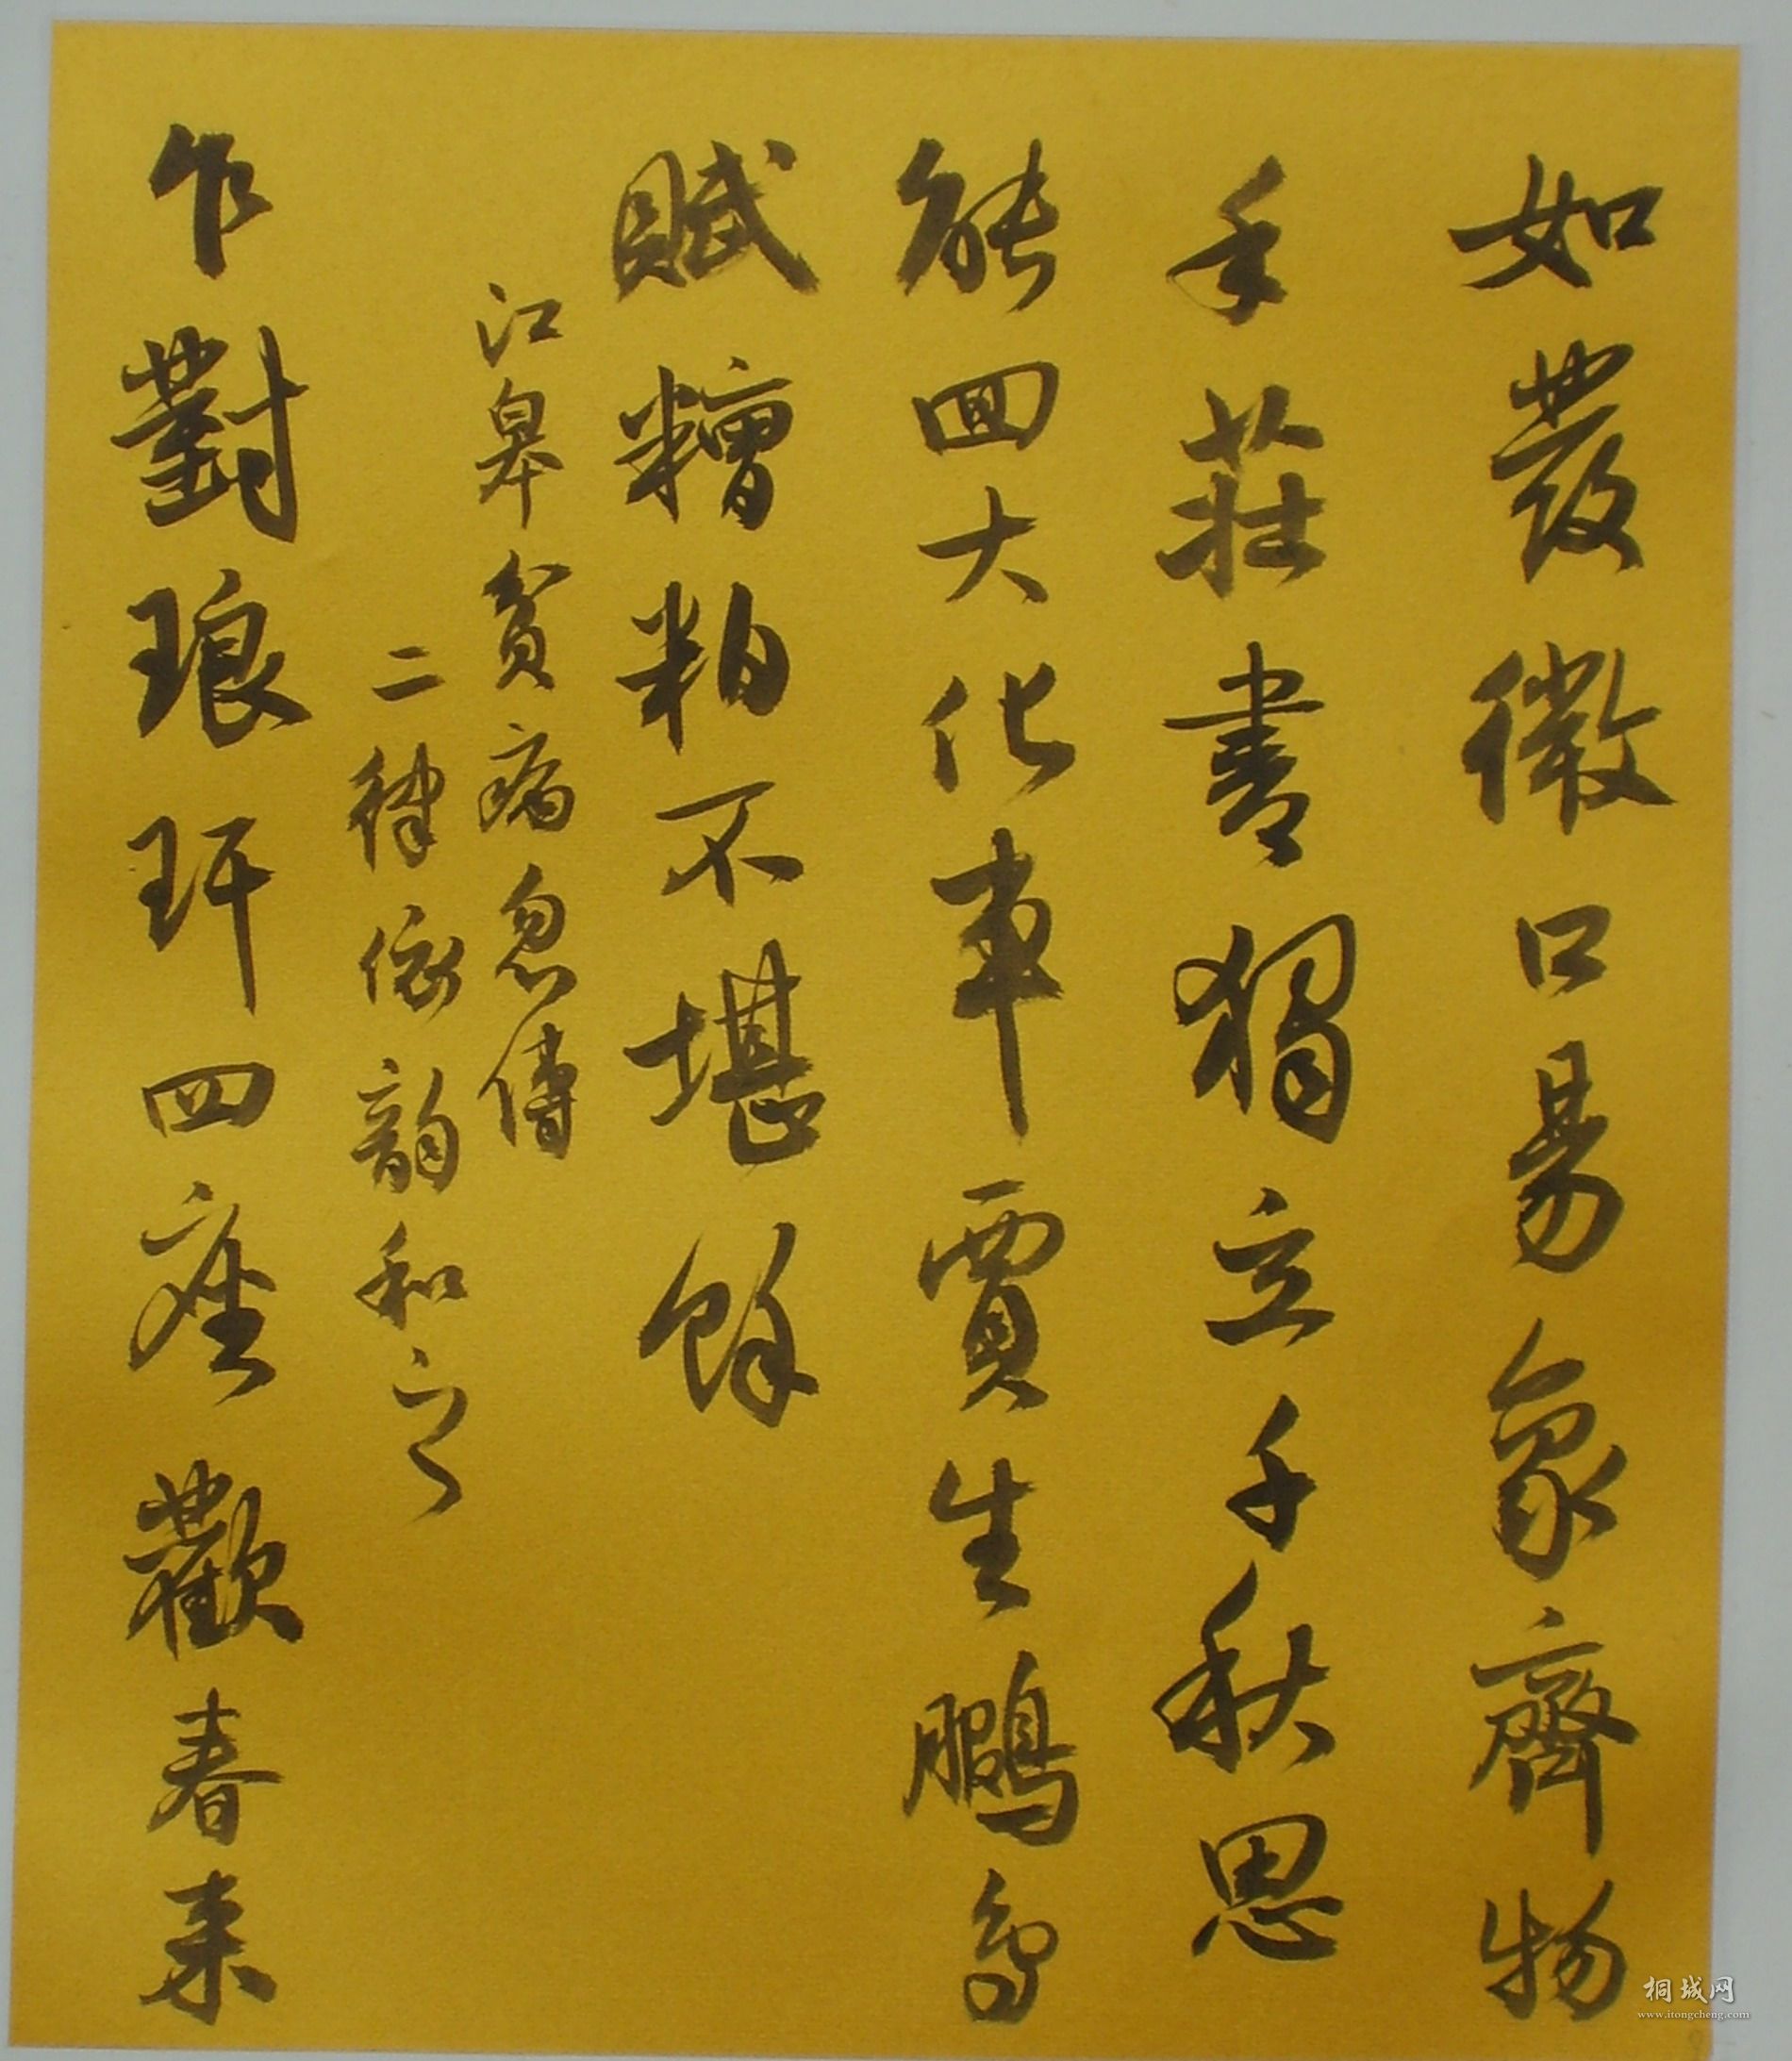 如發微口易象齊物
手莊書獨立千秋思
能回大化事賈生鵬鳥
賦糟粕不堪餘
江皋貧病忽傳
二律依韻和之
乍對琅玕四座歡春来
桐城网
www.itongcheng.com